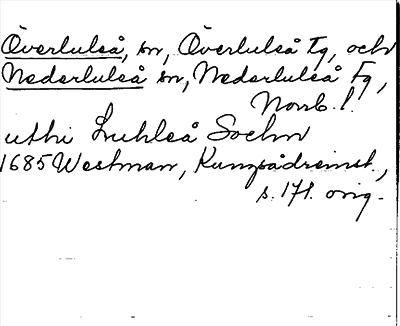 Överluleå, sn, Överluleå tg, och
Nederluleå sn, Nederluleå tg,
Norrb. l.
uthi Luhleå Sochn
1685 Westman, Kunsrådreinst.,
s. 171. orig.